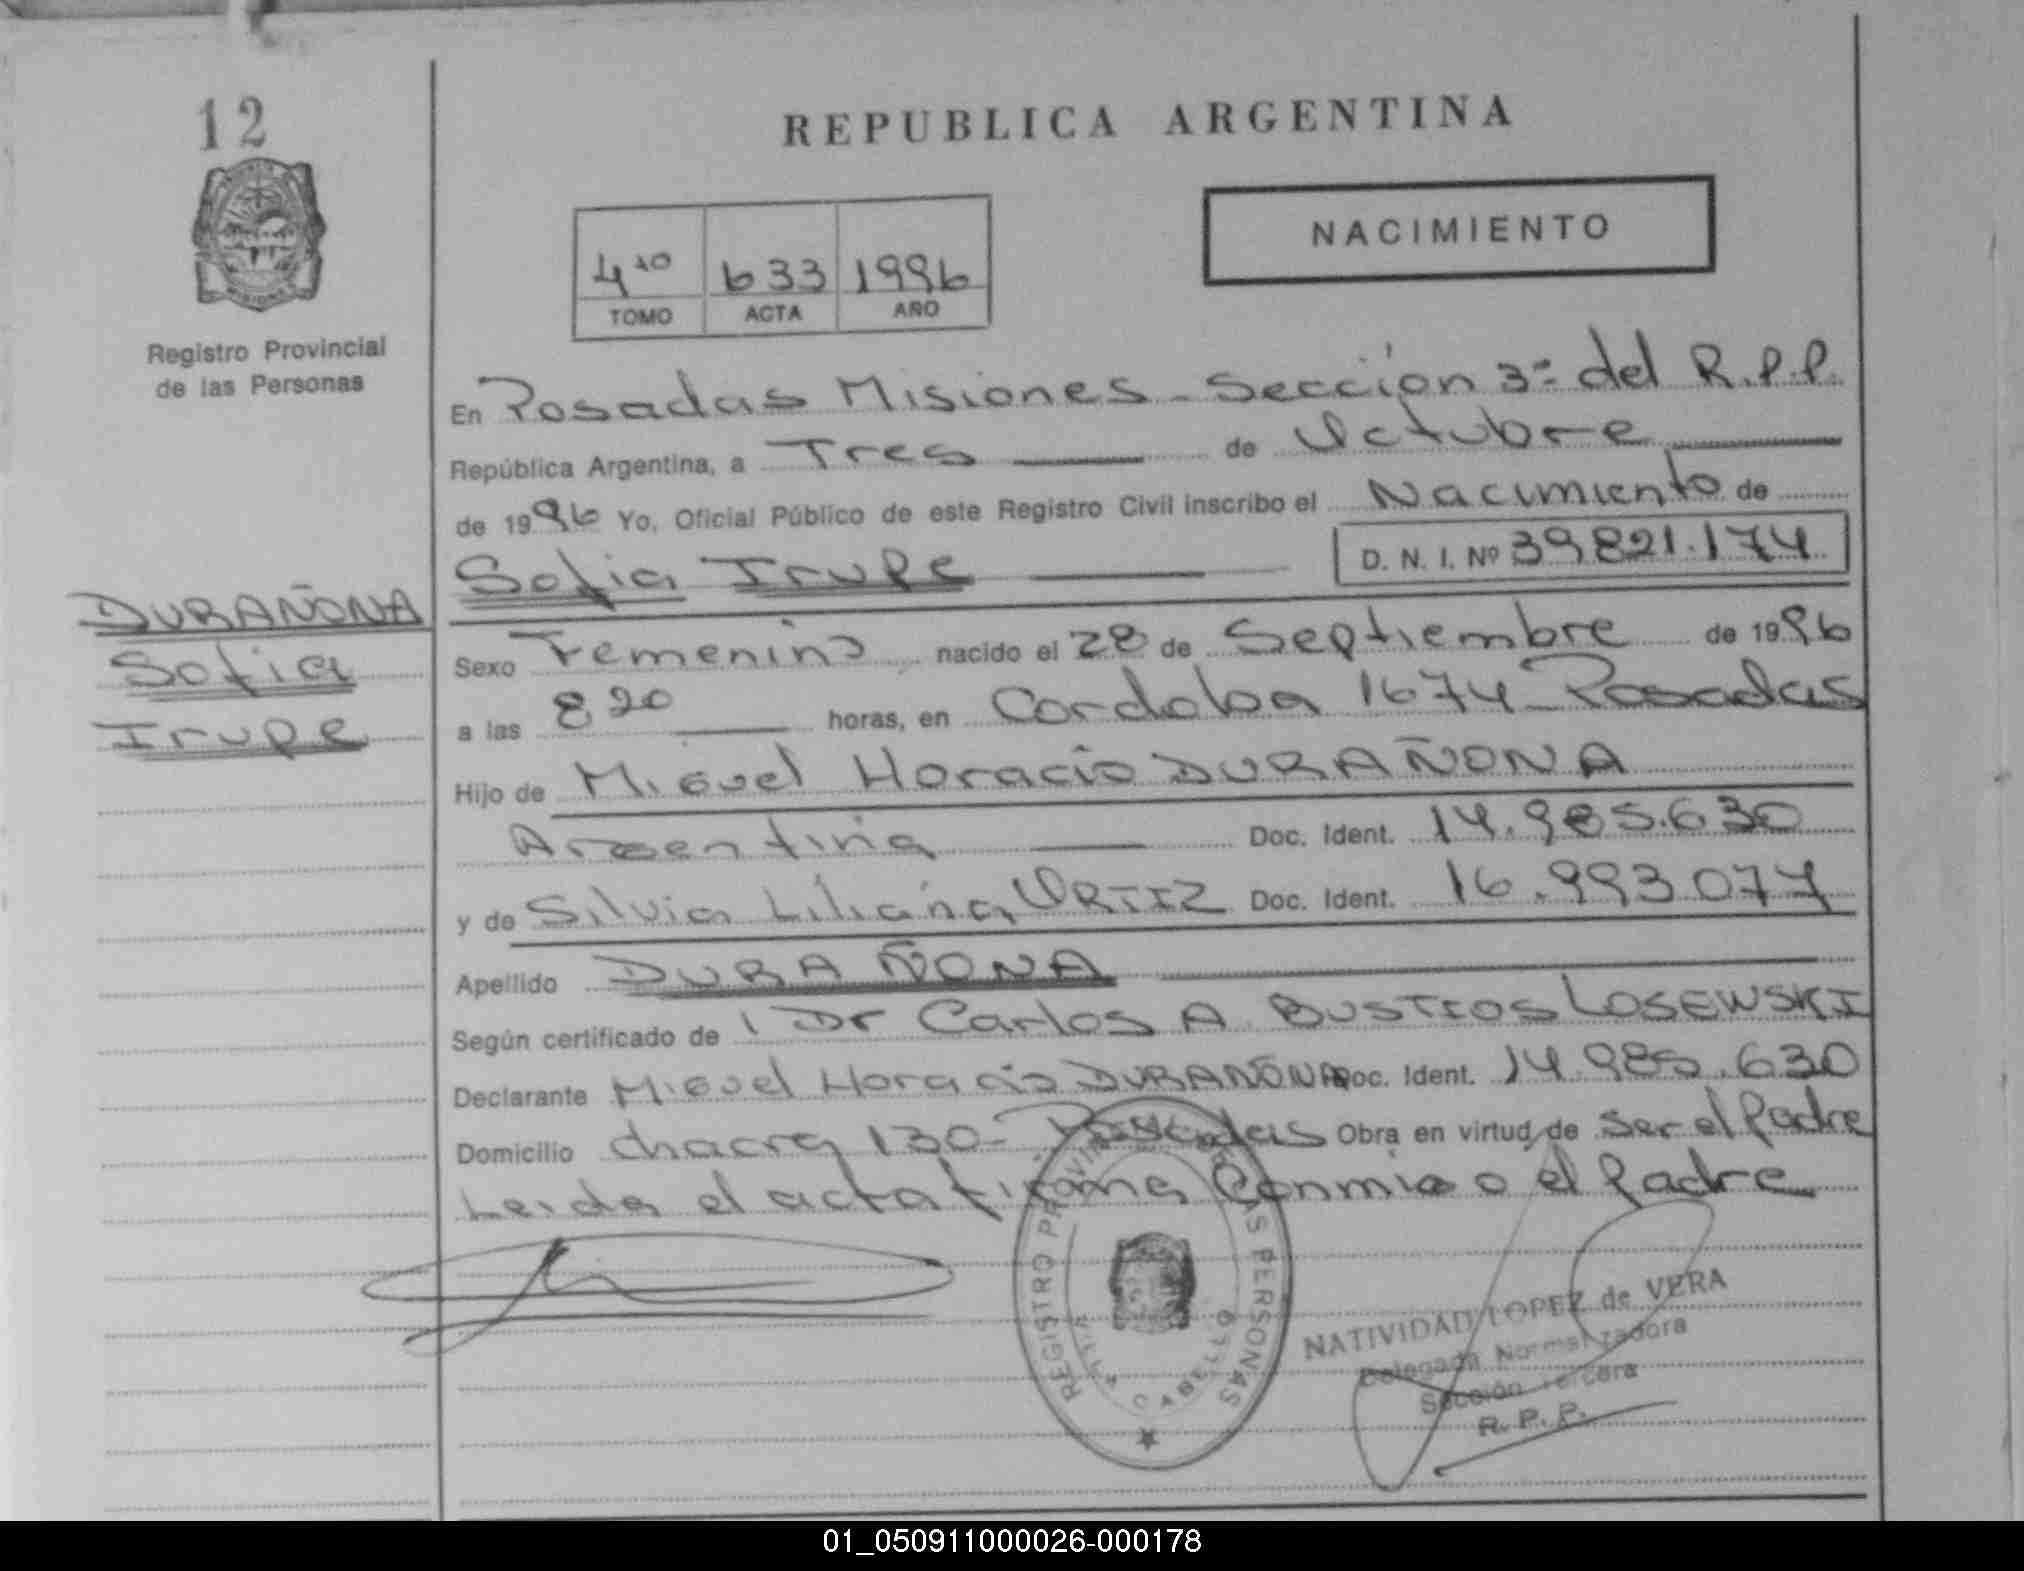 12
Registro Provincial
de las Personas
DURAÑONA
Sofia
Irupe
REPUBLICA ARGENTINA
4to 633 1996
TOMO ACTA AÑO
NACIMIENTO
En Posadas Misiones - Sección 3ª del R.P.P.
República Argentina, a Tres de Octubre
de 1996 Yo, Oficial Público de este Registro Civil inscribo el Nacimiento de
Sofia Irupe D. N. I. Nº 39.821.174
Sexo Femenino nacido el 28 de Septiembre de 1996
a las 8 20 horas, en Cordoba 1674 - Posadas
Hijo de Miguel Horacio DURAÑONA
Argentina Doc. Ident. 14.985.630
y de Silvia Liliana ORTIZ Doc. Ident. 16.993.077
Apellido DURAÑONA
Según certificado de 1 Dr Carlos A. BUSTROS LOSEWSKI
Declarante Miguel Horacio DURAÑONA Doc. Ident. 14.985.630
Domicilio chacra 130 - Posadas Obra en virtud de ser el Padre
Leida el acta firma Conmigo el Padre
REGISTRO PROVINCIAL DE LAS PERSONAS
VILLA CABELLO
NATIVIDAD LOPEZ de VERA
Delegada Normalizadora
Sección Tercera
R. P. P.
01_050911000026-000178